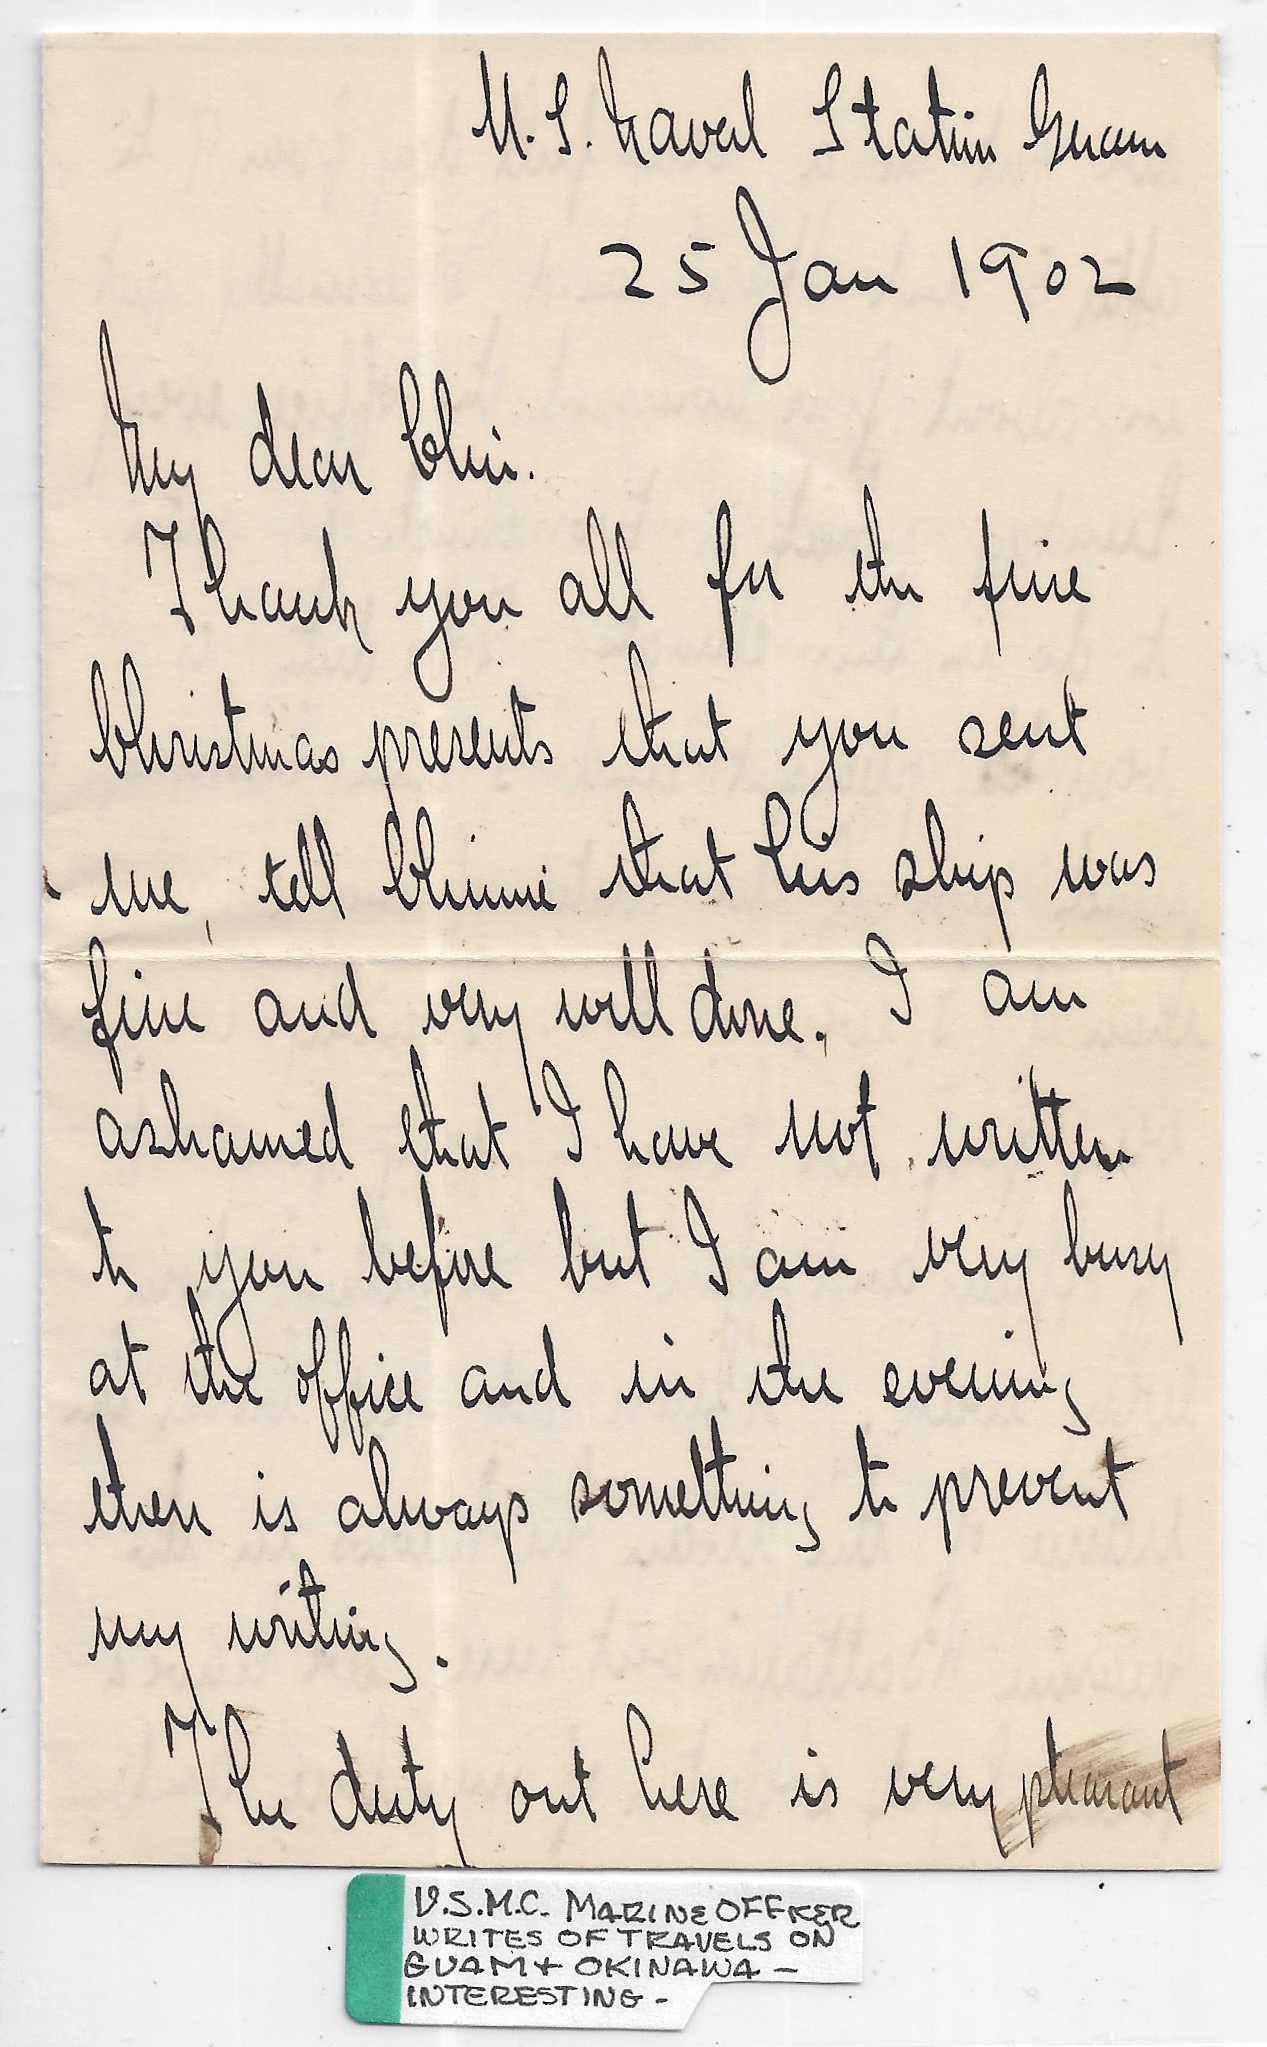 U.S. Naval Station Guam
25 Jan 1902
My dear
Thank you all for the fine
Christmas presents that you sent
me, tell that his ship was
fine and very well done. I am
ashamed that I have not written
to you before but I am very busy
at the office and in the evening
there is always something to prevent
my writing.
The duty out here is very pleasant
U.S.M.C. MARINE OFFICER
WRITES OF TRAVELS ON
GUAM + OKINAWA -
INTERESTING -